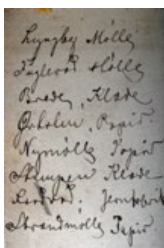 Lyngby Mølle
Fuglevad Mølle
Brede, Klæde
Ørholm, Papir
Nymølle Papir
Stampen Klæde
Raadvad, Jernfabrik
Strandmølle Papir